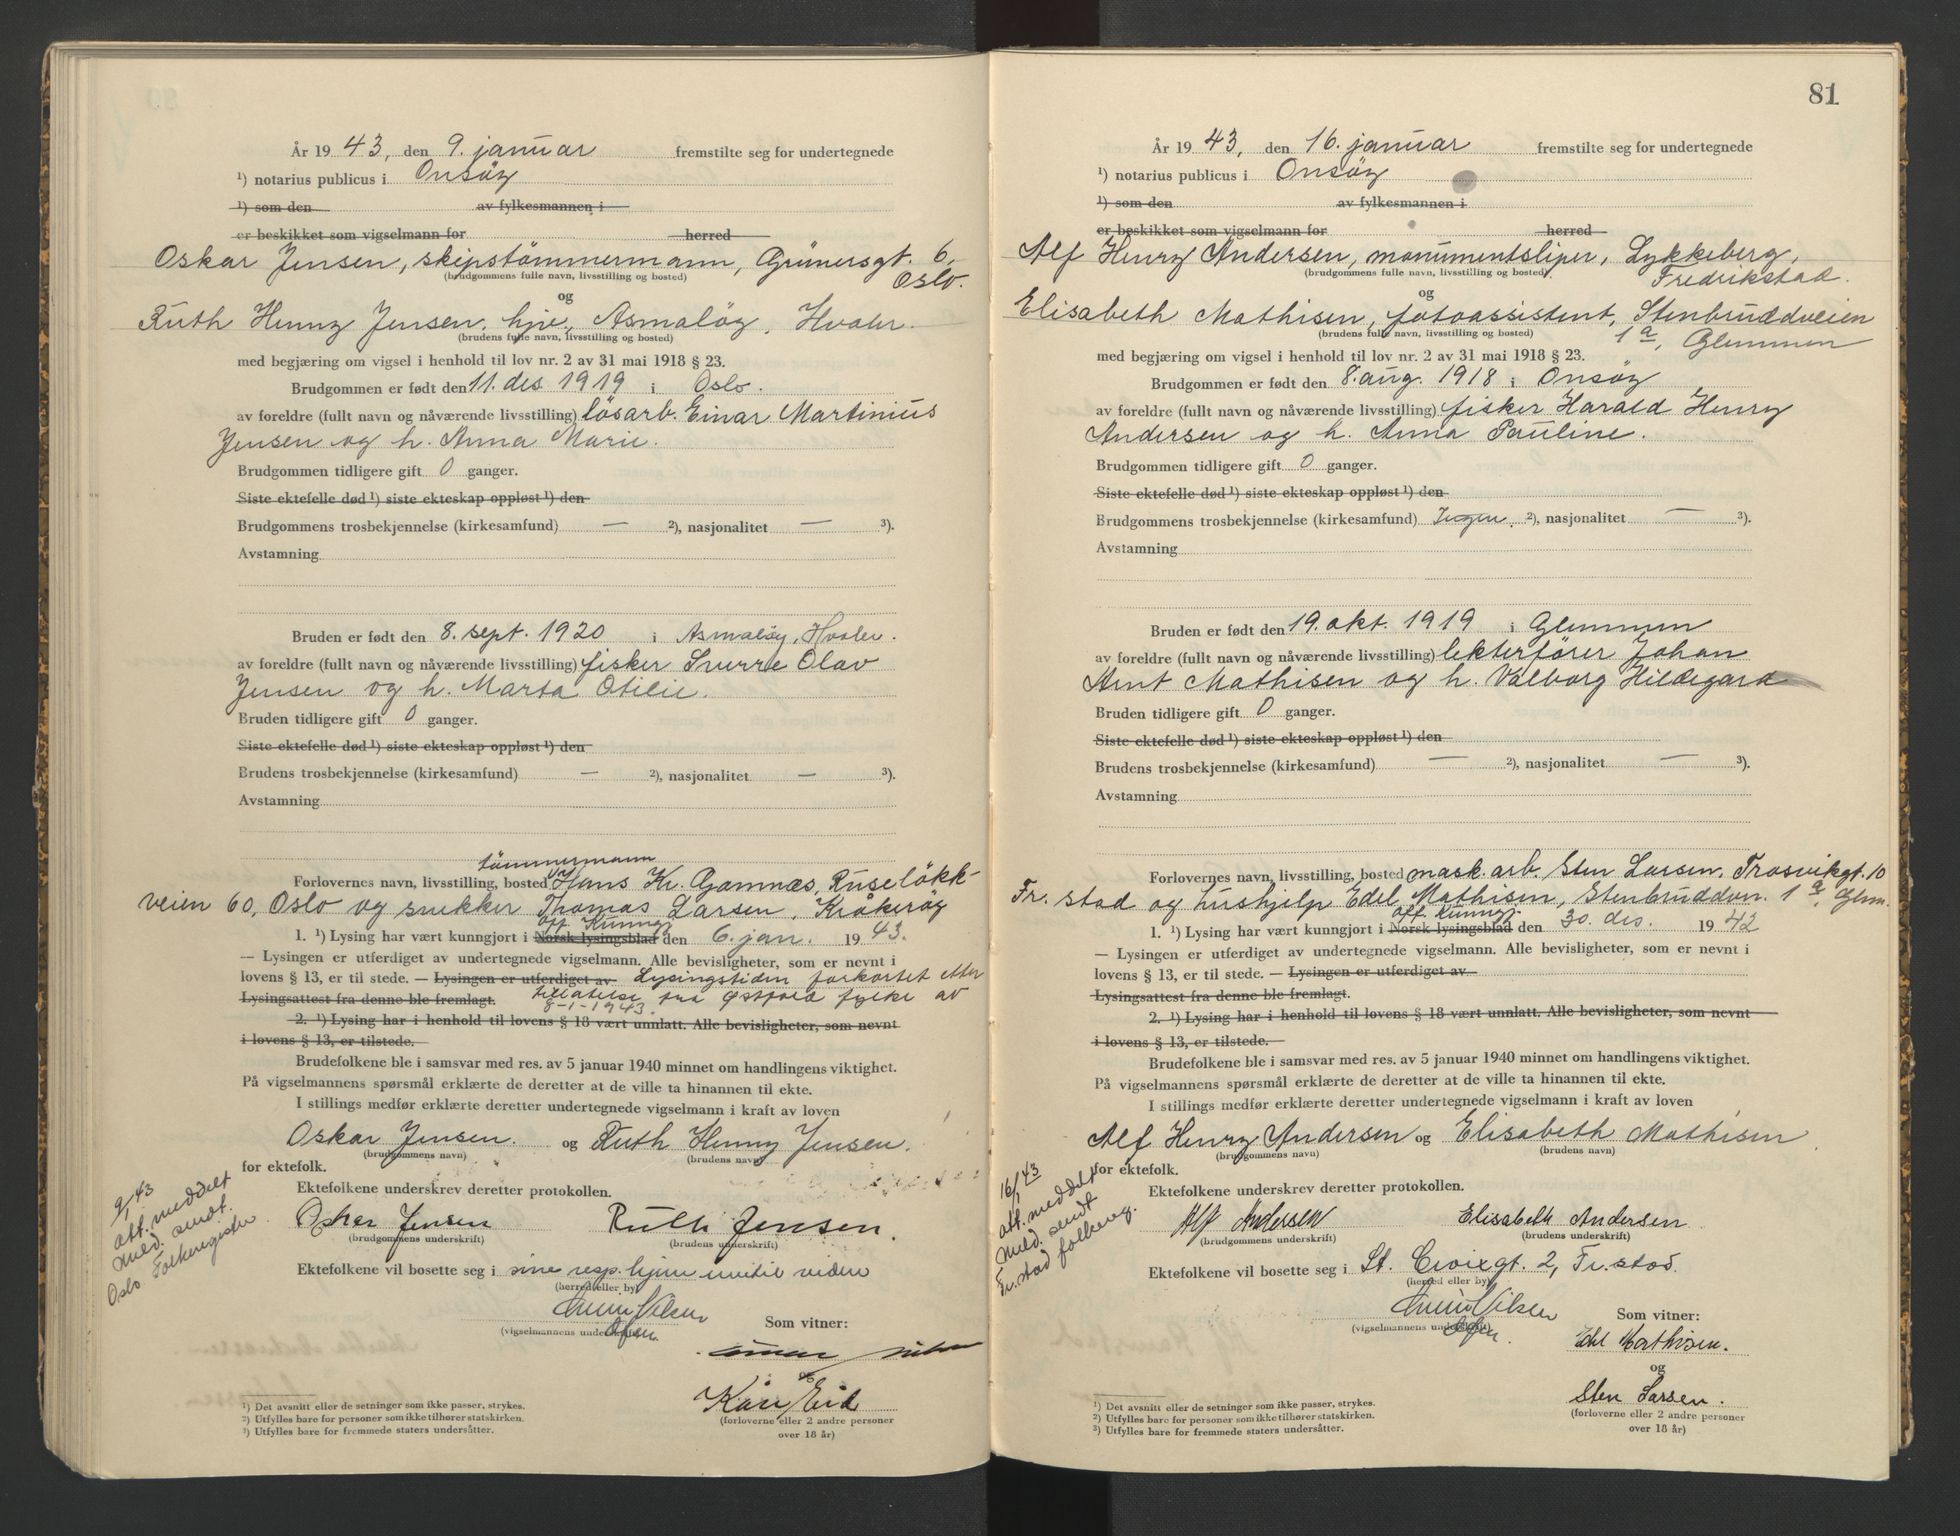 År 19 43, den 9. januar fremstilte seg for undertegnede
¹) notarius publicus i Onsöy
¹) som den av fylkesmannen i
er beskikket som vigselmann for herred
Oskar Jensen, skipstömmermann, Grünersgt. 6,
(brudgommens fulle navn, livsstilling og bosted)
Oslo.
og
Ruth Henny Jensen, hjv., Asmalöy, Hvaler.
(brudens fulle navn, livsstilling og bosted)
med begjæring om vigsel i henhold til lov nr. 2 av 31 mai 1918 § 23.
Brudgommen er født den 11. des. 1919 i Oslo.
av foreldre (fullt navn og nåværende livsstilling) lösarb. Einar Martinius
Jensen og h. Anna Marie.
Brudgommen tidligere gift 0 ganger.
Siste ektefelle død ¹) siste ekteskap oppløst ¹) den
Brudgommens trosbekjennelse (kirkesamfund) — ²), nasjonalitet — ³).
Avstamning
Bruden er født den 8. sept. 1920 i Asmalöy, Hvaler.
av foreldre (fullt navn og nåværende livsstilling) fisker Sverre Olav
Jensen og h. Marta Otilie.
Bruden tidligere gift 0 ganger.
Siste ektefelle død ¹) siste ekteskap oppløst ¹) den
Brudens trosbekjennelse (kirkesamfund) — ²), nasjonalitet — ³).
Avstamning
tömmermann
Forlovernes navn, livsstilling, bosted Hans Kr. Gamnæs, Ruselökk-
veien 60, Oslo og snekker Thomas Larsen, Kråkeröy
off. Kunngj.
1. ¹) Lysing har vært kunngjort i Norsk lysingsblad den 6. jan. 1943.
— Lysingen er utferdiget av undertegnede vigselmann. Alle bevisligheter, som er nevnt i
lovens § 13, er til stede. — Lysingen er utferdiget av Lysingstiden forkortet etter
Lysingsattest fra denne ble fremlagt. tillatelse fra Østfold fylke av
8-1-1943.
2. ¹) Lysing har i henhold til lovens § 18 vært unnlatt. Alle bevisligheter, som nevnt
i lovens § 13, er tilstede.
Brudefolkene ble i samsvar med res. av 5 januar 1940 minnet om handlingens viktighet.
På vigselmannens spørsmål erklærte de deretter at de ville ta hinannen til ekte.
I stillings medfør erklærte deretter undertegnede vigselmann i kraft av loven
Oskar Jensen. og Ruth Henny Jensen.
(brudgommens navn) (brudens navn)
for ektefolk.
9/1 43
att. meddelt
meld. sendt.
Oslo Folkeregister.
Ektefolkene underskrev deretter protokollen.
Oskar Jensen Ruth Jensen.
(brudgommens underskrift) (brudens underskrift)
Ektefolkene vil bosette seg i sine resp. hjem inntil videre
(herred eller by)
Nilsen
(vigselmannens underskrift)
Som vitner:
og
Kåre Eid
(forloverne eller 2 andre personer
over 18 år)
¹) Det avsnitt eller de setninger som ikke passer, strykes.
²) Utfylles bare for personer som ikke tilhører statskirken.
³) Utfylles bare for fremmede staters undersåtter.
81
År 19 43, den 16. januar fremstilte seg for undertegnede
¹) notarius publicus i Onsöy
¹) som den av fylkesmannen i
er beskikket som vigselmann for herred
Alf Henry Andersen, monumentsliper, Lykkeberg,
(brudgommens fulle navn, livsstilling og bosted)
Fredrikstad.
og
Elisabeth Mathisen, fotoassistent, Stenbruddveien
(brudens fulle navn, livsstilling og bosted)
1 a, Glemmen
med begjæring om vigsel i henhold til lov nr. 2 av 31 mai 1918 § 23.
Brudgommen er født den 8. aug. 1918 i Onsöy
av foreldre (fullt navn og nåværende livsstilling) fisker Harald Henry
Andersen og h. Anna Pauline.
Brudgommen tidligere gift 0 ganger.
Siste ektefelle død ¹) siste ekteskap oppløst ¹) den
Brudgommens trosbekjennelse (kirkesamfund) Ingen. ²), nasjonalitet — ³).
Avstamning
Bruden er født den 19. okt. 1919 i Glemmen
av foreldre (fullt navn og nåværende livsstilling) lekterförer Johan
Arnt Mathisen og h. Valborg Hildegard
Bruden tidligere gift 0 ganger.
Siste ektefelle død ¹) siste ekteskap oppløst ¹) den
Brudens trosbekjennelse (kirkesamfund) — ²), nasjonalitet — ³).
Avstamning
Forlovernes navn, livsstilling, bosted mask.arb. Sten Larsen, Trosvikgt. 10
Fr.stad og hushjelp Edel Mathisen, Stenbruddvn. 1 a, Glem.
off. Kunngj.
1. ¹) Lysing har vært kunngjort i Norsk lysingsblad den 30. des. 1942
— Lysingen er utferdiget av undertegnede vigselmann. Alle bevisligheter, som er nevnt i
lovens § 13, er til stede. — Lysingen er utferdiget av
Lysingsattest fra denne ble fremlagt.
2. ¹) Lysing har i henhold til lovens § 18 vært unnlatt. Alle bevisligheter, som nevnt
i lovens § 13, er tilstede.
Brudefolkene ble i samsvar med res. av 5 januar 1940 minnet om handlingens viktighet.
På vigselmannens spørsmål erklærte de deretter at de ville ta hinannen til ekte.
I stillings medfør erklærte deretter undertegnede vigselmann i kraft av loven
Alf Henry Andersen og Elisabeth Mathisen
(brudgommens navn) (brudens navn)
for ektefolk.
16/1 43
att. meddelt
meld. sendt
Fr.stad folkereg.
Ektefolkene underskrev deretter protokollen.
Alf Andersen Elisabeth Andersen
(brudgommens underskrift) (brudens underskrift)
Ektefolkene vil bosette seg i St. Croixgt. 2, Fr.stad.
(herred eller by)
Nilsen
(vigselmannens underskrift)
Som vitner:
Edel Mathisen.
og
Sten Larsen.
(forloverne eller 2 andre personer
over 18 år)
¹) Det avsnitt eller de setninger som ikke passer, strykes.
²) Utfylles bare for personer som ikke tilhører statskirken.
³) Utfylles bare for fremmede staters undersåtter.